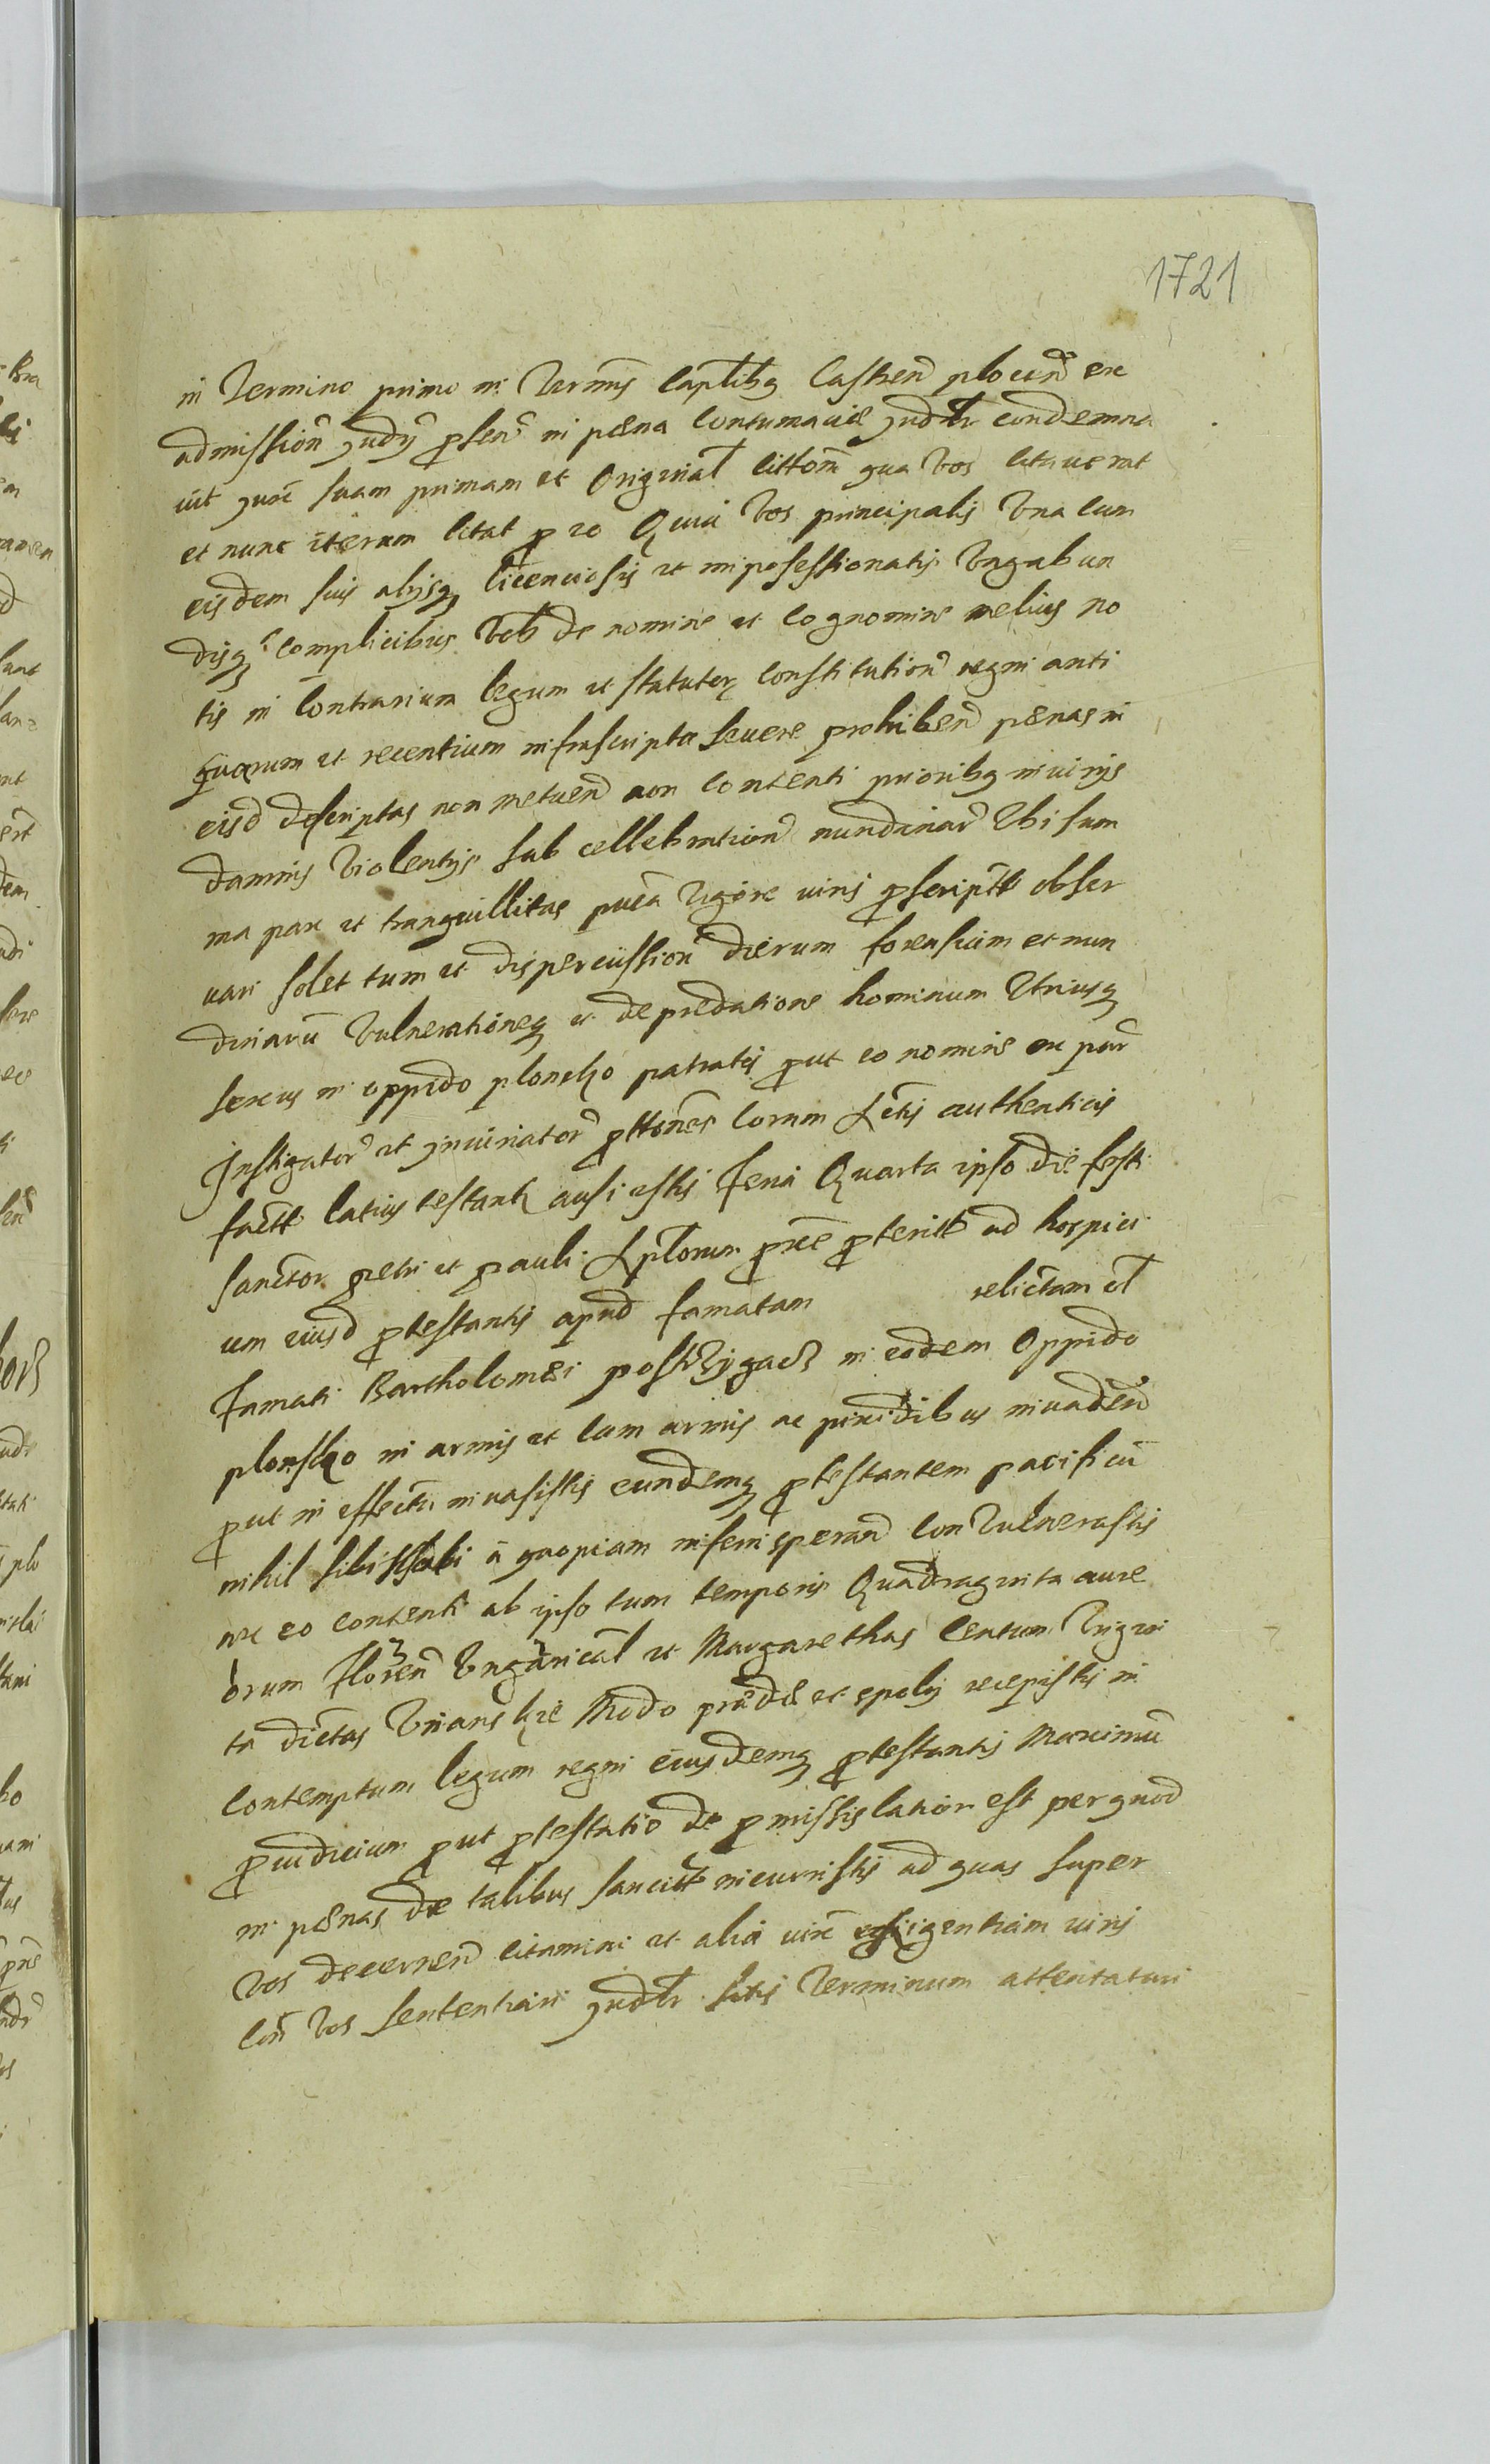 1721
in Termino primo in Terminis Captlibg Castren plocen ex
admission Judy psen in pœna Contumacie Judtr condemna
vit juxe suam primam et Original littom qua vos citaverat
et nunc iterum citat p eo Quia Vos principalis Una cum
eisdem suis alysq licenciosis et impossessionatis Vagabun
disq complicibus Vob de nomine et cognomine melius no
tis in Contrarium legum et statutor Constitution regni anti
quorum et recentium infrascripta severe prohiben pœnas in
eisd descriptas non metuen non contenti prioribg iniurijs
damnis Violentijs sub cellebration nundinar Ubi sum
ma pax et tranquillitas publca Vigore iuris pscriptt obser
vari solet tum et dispercussion dierum forensium et nun
dinaru Vulnerationeq et depredatione hominum Utriusq
sexus in oppido plonsko patratis put eo nomine ex par
Instigator et Iniuriator pttiones Coram Actis authenticis
factt latius testantr ausi estis Feria Quarta ipso die festi
Sanctor petri et pauli Aplorum pxe pterite ad hospici
um eiusd ptestantis apud famatam relictam ol
Famati Bartholomei postrzygacz in eodem Oppido
plonsko in armis et cum armis ac pixidibus invaden
put in effectu invasistis eundemq ptestantem pacificu
nihil sibi mali a quopiam inferri speran Convulnerastis
nec eo contenti ab ipso tum temporis Quadraginta aure
orum floren Ungarical et Margarethas Centum Trigin
ta dictas Urianskie Modo prædæ et spolij recepistis in
Contemptum legum regni eiusdemq ptestantis Maximu
piudicium put ptestatio de pmissis latior est per quod
in pœnas de talibus sancitt incurristis ad quas super
Vos decernen citamini et alia iuxe exigentiam iuris
Con Vos sententiari Judtr sitis Terminum attentaturi